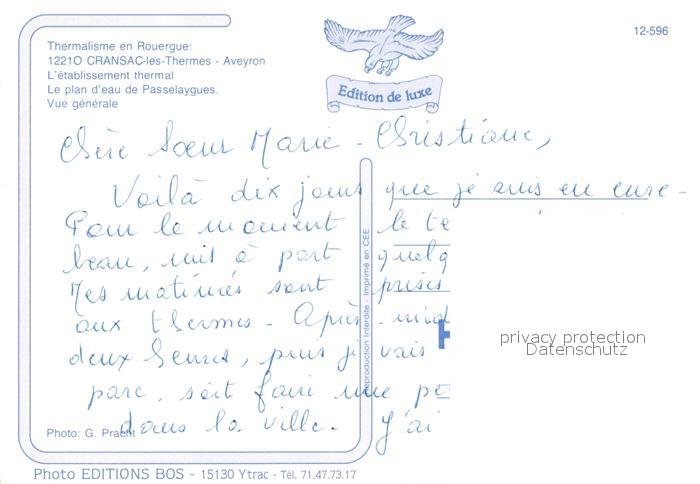 Thermalisme en Rouergue:
12210 CRANSAC-les-Thermes - Aveyron
L'établissement thermal
Le plan d'eau de Passelaygues.
Vue générale
12-596
Edition de luxe
Chère Sœur Marie-Christiane,
Voilà dix jours que je suis en cure-
Pour le moment le te
beau, mis à part quelq
Mes matinées sont prises
aux thermes - Après-mid
deux heures, puis je vais
parc, soit faire une pe
dans la ville. J'ai
Reproduction Interdite - Imprimé en CEE
privacy protection
Datenschutz
Photo: G. Pracht
Photo EDITIONS BOS - 15130 Ytrac - Tél. 71.47.73.17